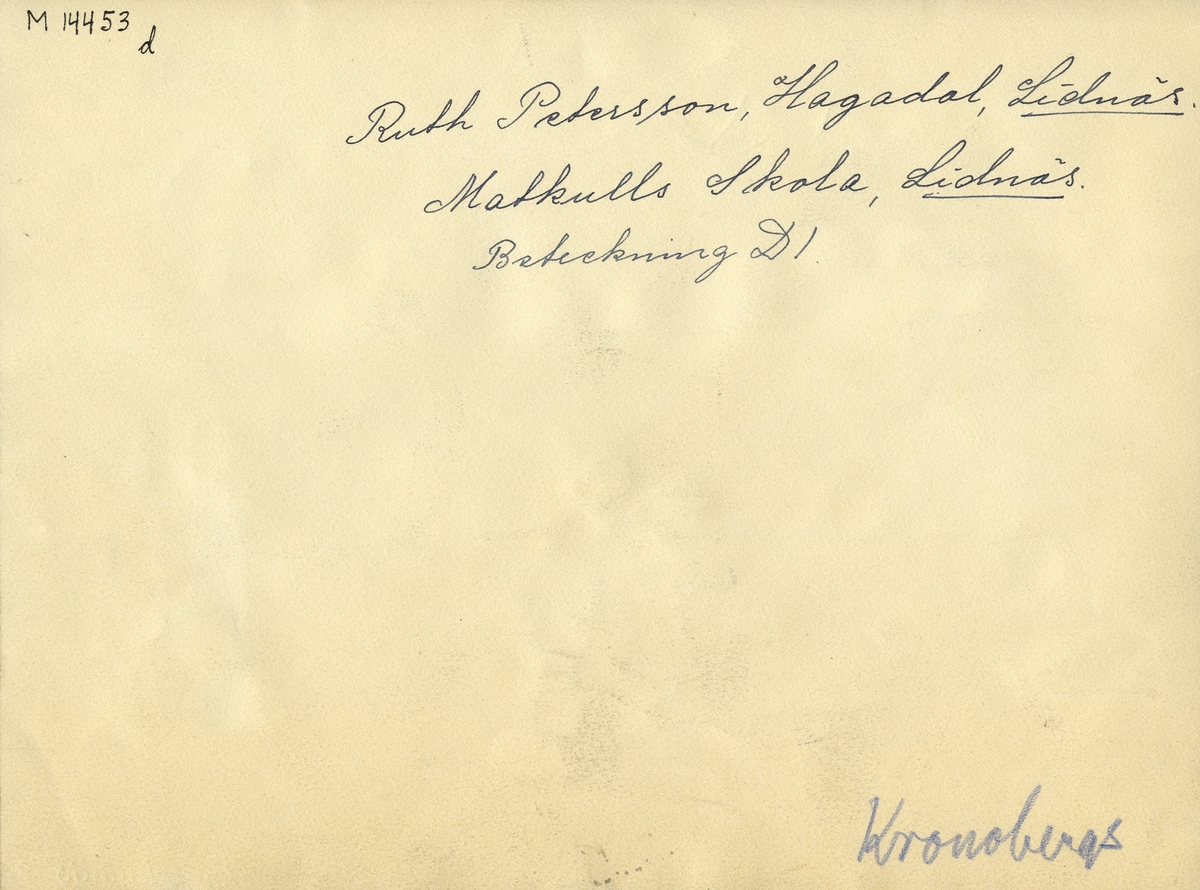 M 14453
d
Ruth Petersson, Hagadal, Lidnäs.
Matkulls Skola, Lidnäs.
Beteckning D1.
Kronobergs